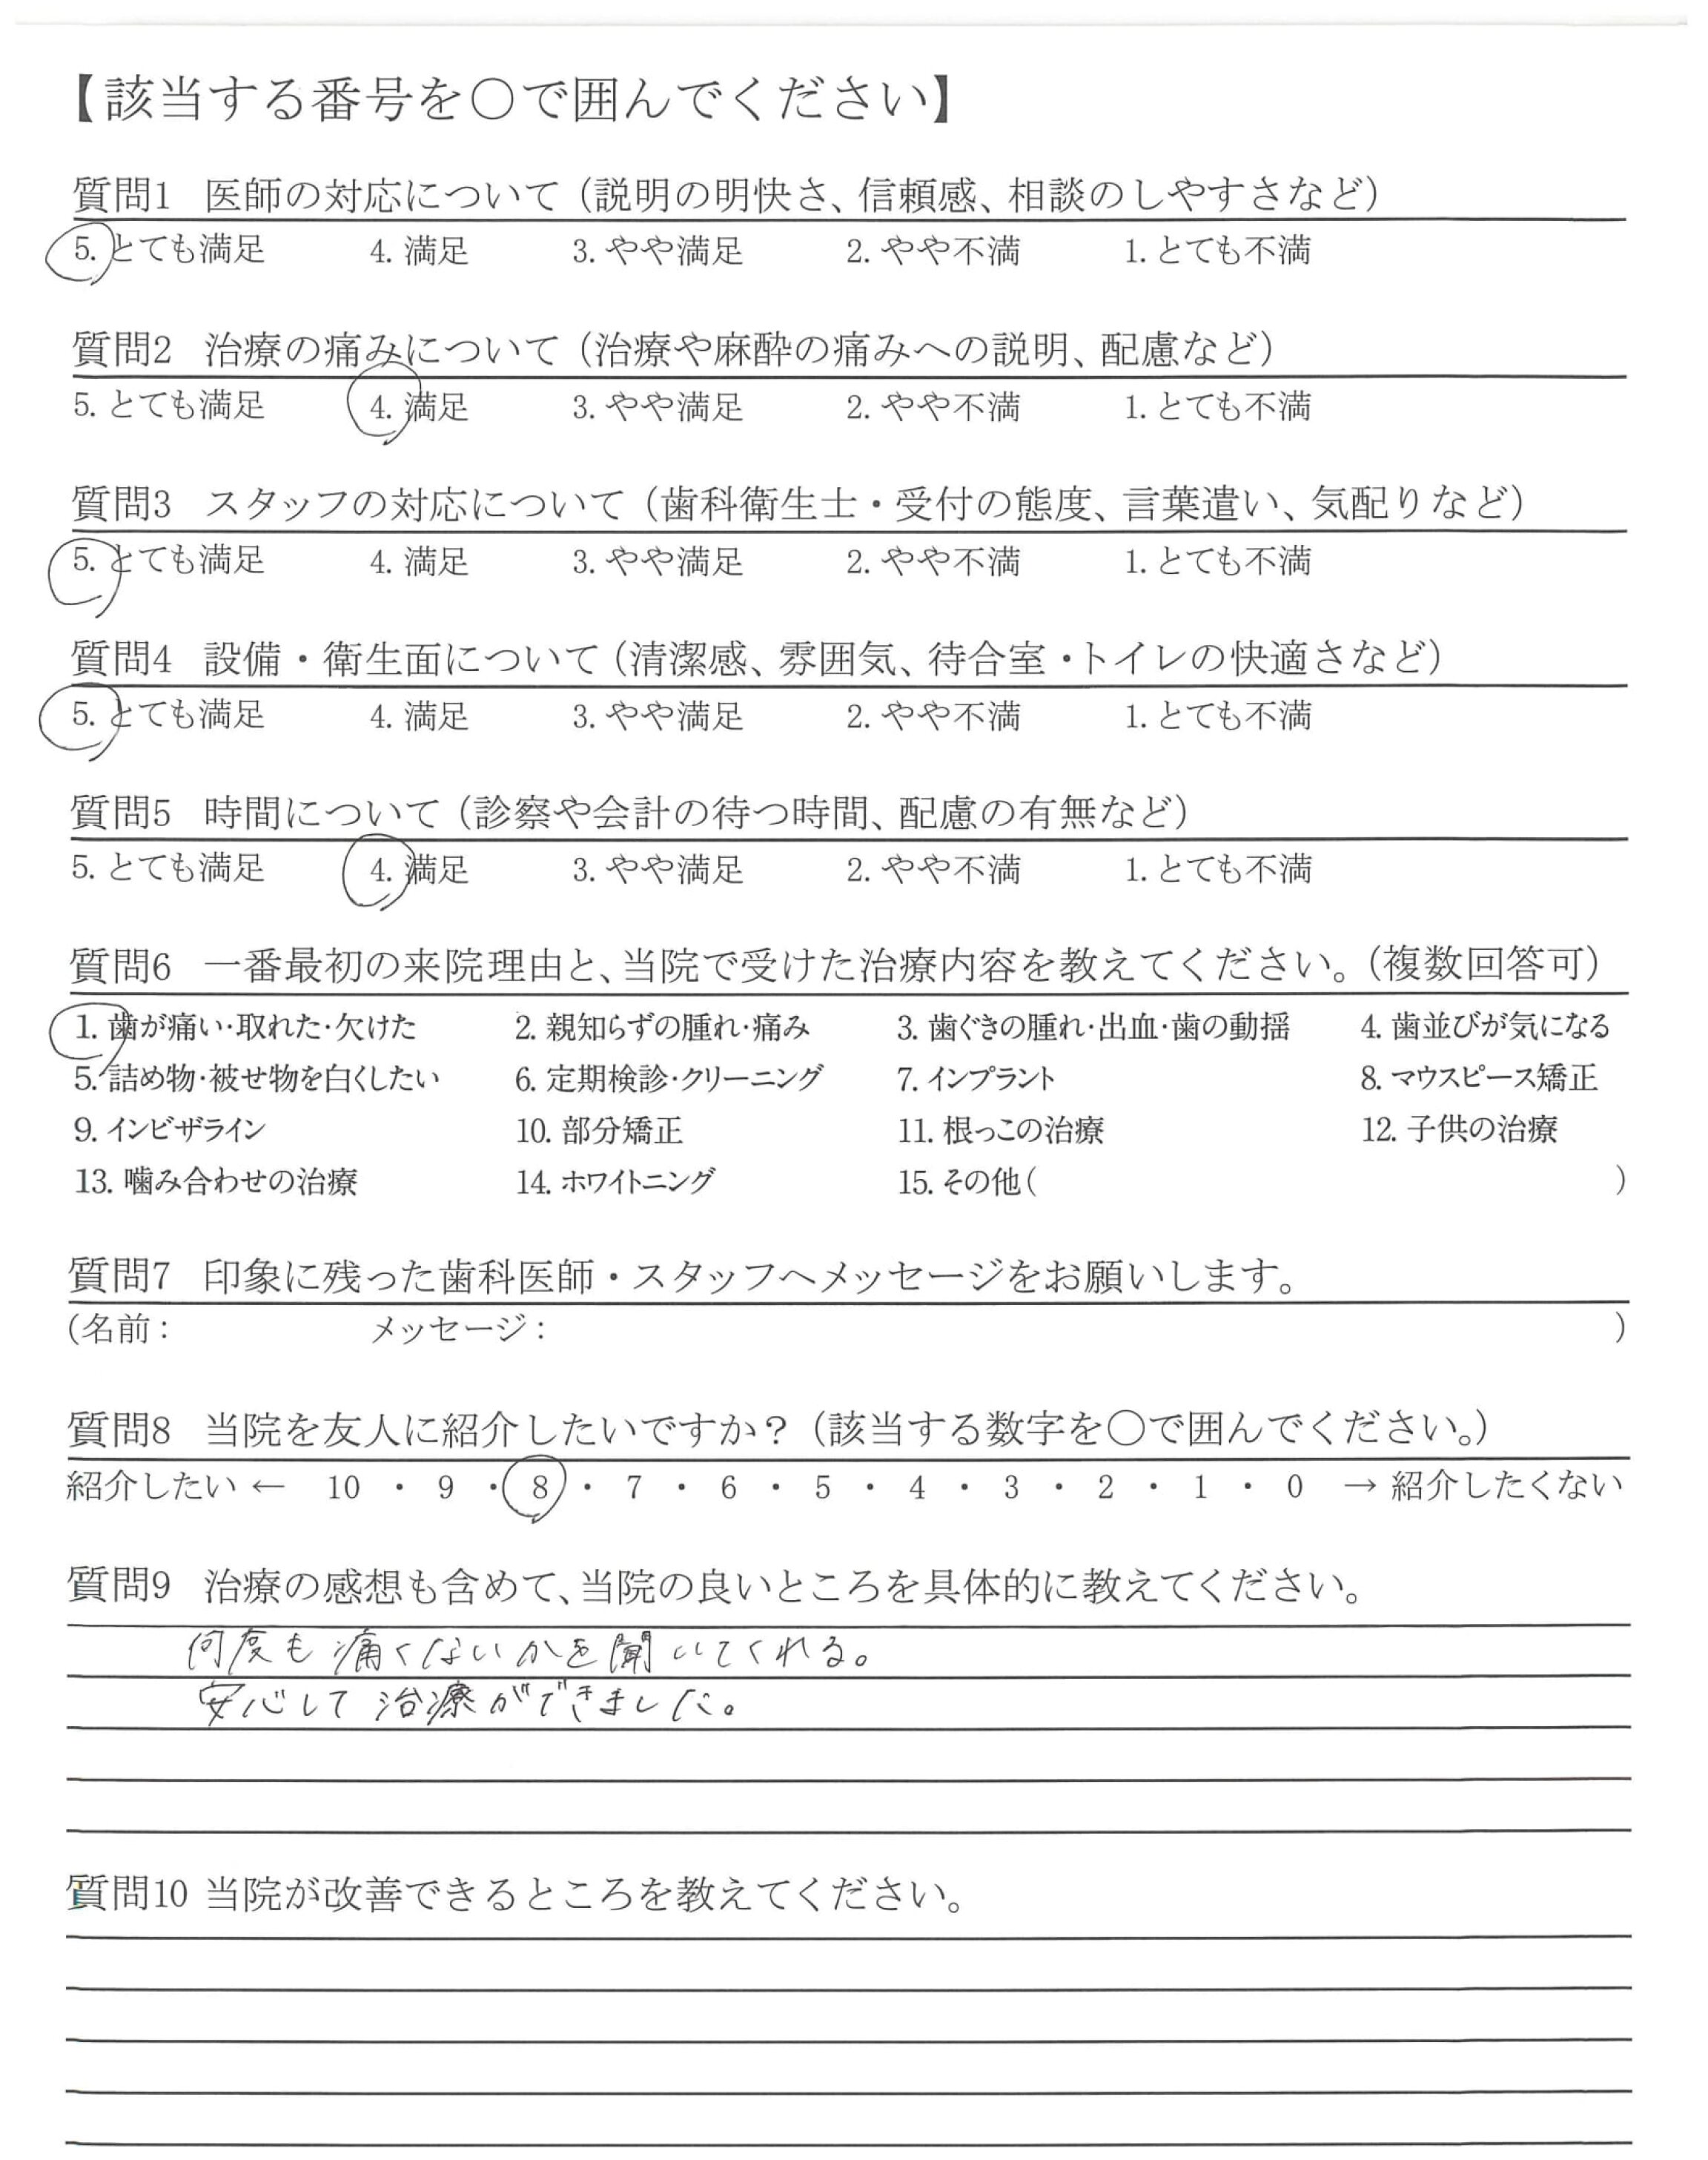 【該当する番号を○で囲んでください】
質問1 医師の対応について（説明の明快さ、信頼感、相談のしやすさなど）
5. とても満足 4. 満足 3. やや満足 2. やや不満 1. とても不満
質問2 治療の痛みについて（治療や麻酔の痛みへの説明、配慮など）
5. とても満足 4. 満足 3. やや満足 2. やや不満 1. とても不満
質問3 スタッフの対応について（歯科衛生士・受付の態度、言葉遣い、気配りなど）
5. とても満足 4. 満足 3. やや満足 2. やや不満 1. とても不満
質問4 設備・衛生面について（清潔感、雰囲気、待合室・トイレの快適さなど）
5. とても満足 4. 満足 3. やや満足 2. やや不満 1. とても不満
質問5 時間について（診察や会計の待つ時間、配慮の有無など）
5. とても満足 4. 満足 3. やや満足 2. やや不満 1. とても不満
質問6 一番最初の来院理由と、当院で受けた治療内容を教えてください。（複数回答可）
1. 歯が痛い・取れた・欠けた 2. 親知らずの腫れ・痛み 3. 歯ぐきの腫れ・出血・歯の動揺 4. 歯並びが気になる
5. 詰め物・被せ物を白くしたい 6. 定期検診・クリーニング 7. インプラント 8. マウスピース矯正
9. インビザライン 10. 部分矯正 11. 根っこの治療 12. 子供の治療
13. 噛み合わせの治療 14. ホワイトニング 15. その他（ ）
質問7 印象に残った歯科医師・スタッフへメッセージをお願いします。
（名前： メッセージ： ）
質問8 当院を友人に紹介したいですか？（該当する数字を○で囲んでください。）
紹介したい ← 10 ・ 9 ・ 8 ・ 7 ・ 6 ・ 5 ・ 4 ・ 3 ・ 2 ・ 1 ・ 0 → 紹介したくない
質問9 治療の感想も含めて、当院の良いところを具体的に教えてください。
何度も痛くないかを聞いてくれる。
安心して治療ができました。
質問10 当院が改善できるところを教えてください。